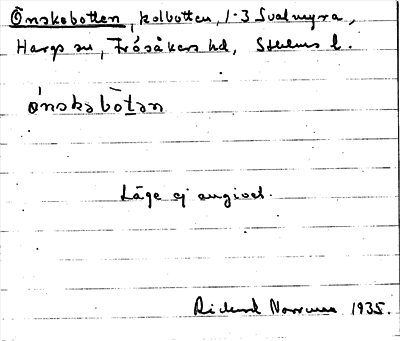 Önskebotten, kolbotten, 1·3 Svalmyra,
Hargs sn, Frösåkers hd, Sthlms l.
önskəbòtən
Läge ej angivet.
Rickard Norrman 1935.